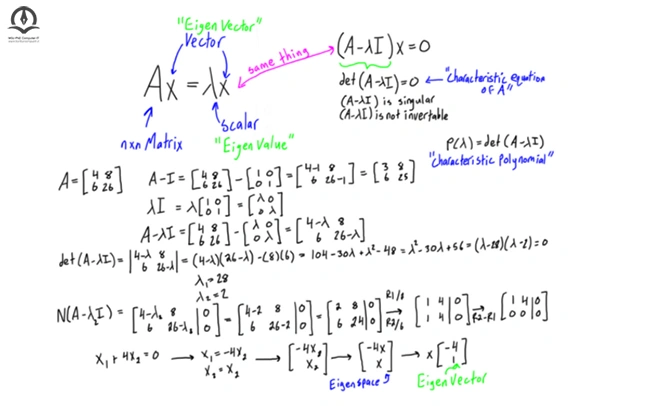 "Eigen Vector"
Vector
Ax = λx
same thing
(A-λI)x=0
det(A-λI)=0 ← "characteristic equation of A"
(A-λI) is singular
(A-λI) is not invertable
nxn Matrix
Scalar
"Eigen Value"
P(λ)=det(A-λI)
"Characteristic Polynomial"
A=[4 8; 6 26] A-I=[4 8; 6 26]-[1 0; 0 1]=[4-1 8; 6 26-1]=[3 8; 6 25]
λI = λ[1 0; 0 1]=[λ 0; 0 λ]
A-λI=[4 8; 6 26]-[λ 0; 0 λ]=[4-λ 8; 6 26-λ]
det(A-λI)=|4-λ 8; 6 26-λ|=(4-λ)(26-λ)-(8)(6)=104-30λ+λ²-48=λ²-30λ+56=(λ-28)(λ-2)=0
λ₁=28
λ₂=2
N(A-λ₂I)=[4-λ₂ 8|0; 6 26-λ₂|0]=[4-2 8|0; 6 26-2|0]=[2 8|0; 6 24|0] R1/2 → R2/6 [1 4|0; 1 4|0] → R2-R1 [1 4|0; 0 0|0]
x₁+4x₂=0 → x₁=-4x₂ x₂=x₂ → [-4x₂; x₂] → [-4x; x] → x[-4; 1]
Eigenspace
Eigen Vector